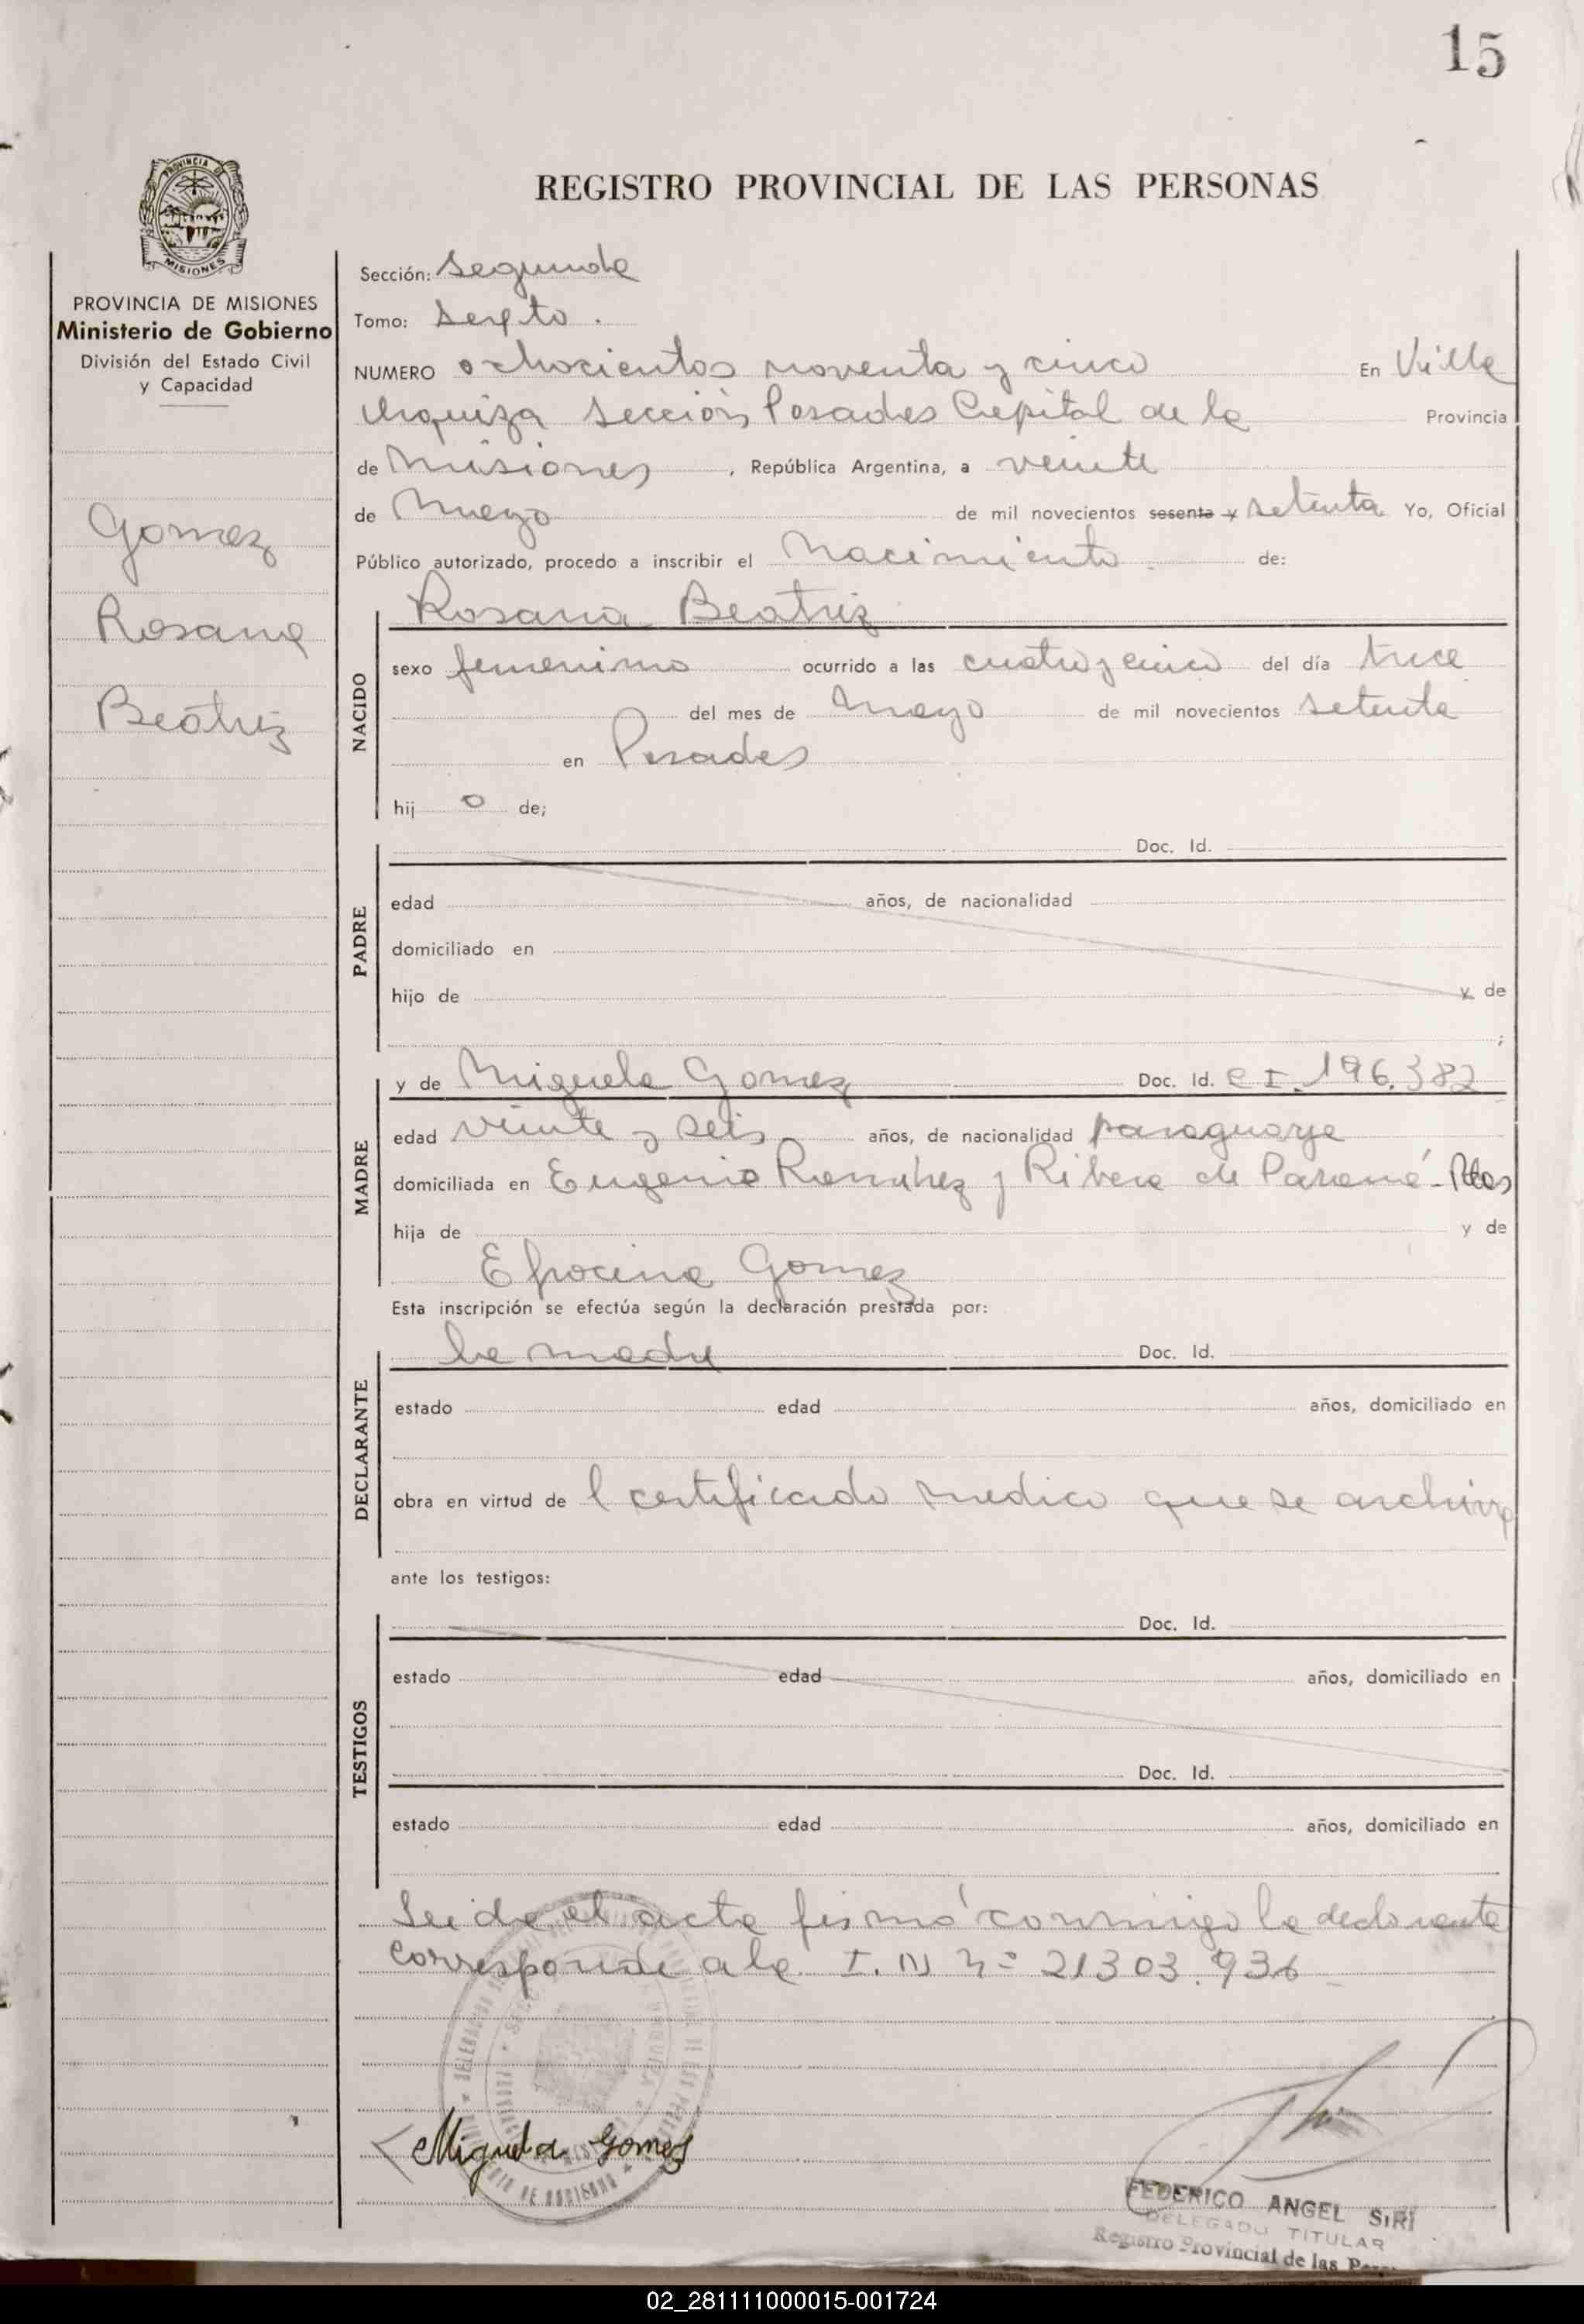 15
PROVINCIA DE
MISIONES
REGISTRO PROVINCIAL DE LAS PERSONAS
PROVINCIA DE MISIONES
Ministerio de Gobierno
División del Estado Civil
y Capacidad
Gomez
Rosana
Beatriz
Sección: Segunda
Tomo: Sexto.
NUMERO ochocientos noventa y cinco En Villa
Urquiza Sección Posadas Capital de la Provincia
de Misiones, República Argentina, a veinte
de Mayo de mil novecientos sesenta y setenta Yo, Oficial
Público autorizado, procedo a inscribir el Nacimiento. de:
NACIDO
Rosana Beatriz
sexo femenino ocurrido a las cuatro y cinco del día trece
del mes de Mayo de mil novecientos setenta
en Posadas
hij o de;
PADRE
Doc. Id.
edad años, de nacionalidad
domiciliado en
hijo de y de
;
MADRE
y de Miguela Gomez Doc. Id. C I. 196.382
edad veinte y seis años, de nacionalidad paraguaya
domiciliada en Eugenio Ramirez y Ribera de Paraná - Pdas
hija de y de
Efrocina Gomez
Esta inscripción se efectúa según la declaración prestada por:
DECLARANTE
la madre Doc. Id.
estado edad años, domiciliado en
obra en virtud de l certificado medico que se archiva
ante los testigos:
TESTIGOS
Doc. Id.
estado edad años, domiciliado en
Doc. Id.
estado edad años, domiciliado en
Leida el acta firmó conmigo la declarante
corresponde a la I. N nº 21303.936
Miguela Gomez
FEDERICO ANGEL SIRI
DELEGADO TITULAR
Registro Provincial de las
02_281111000015-001724